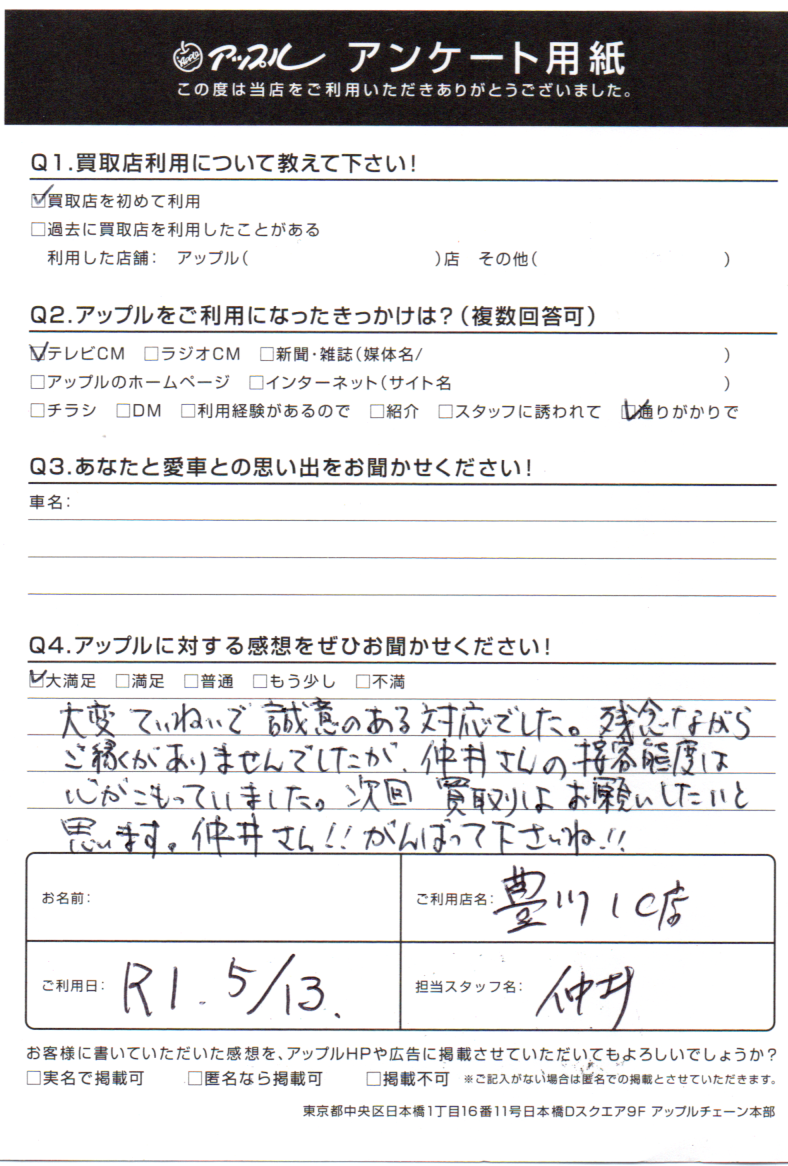 Apple アップル アンケート用紙
この度は当店をご利用いただきありがとうございました。
Q1.買取店利用について教えて下さい!
☑買取店を初めて利用
□過去に買取店を利用したことがある
利用した店舗: アップル( )店 その他( )
Q2.アップルをご利用になったきっかけは?(複数回答可)
☑テレビCM □ラジオCM □新聞・雑誌(媒体名/ )
□アップルのホームページ □インターネット(サイト名 )
□チラシ □DM □利用経験があるので □紹介 □スタッフに誘われて ☑通りがかりで
Q3.あなたと愛車との思い出をお聞かせください!
車名:
Q4.アップルに対する感想をぜひお聞かせください!
☑大満足 □満足 □普通 □もう少し □不満
大変ていねいで誠意のある対応でした。残念ながら
ご縁がありませんでしたが、仲井さんの接客態度は
心がこもっていました。次回買取りはお願いしたいと
思います。仲井さん!!がんばって下さいね!!
お名前:
ご利用店名: 豊川IC店
ご利用日: R1.5/13.
担当スタッフ名: 仲井
お客様に書いていただいた感想を、アップルHPや広告に掲載させていただいてもよろしいでしょうか?
□実名で掲載可 □匿名なら掲載可 □掲載不可 ※ご記入がない場合は匿名での掲載とさせていただきます。
東京都中央区日本橋1丁目16番11号日本橋Dスクエア9F アップルチェーン本部